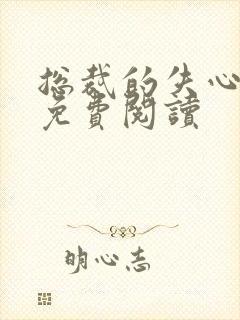 总裁的失心
免費閱讀
明心志